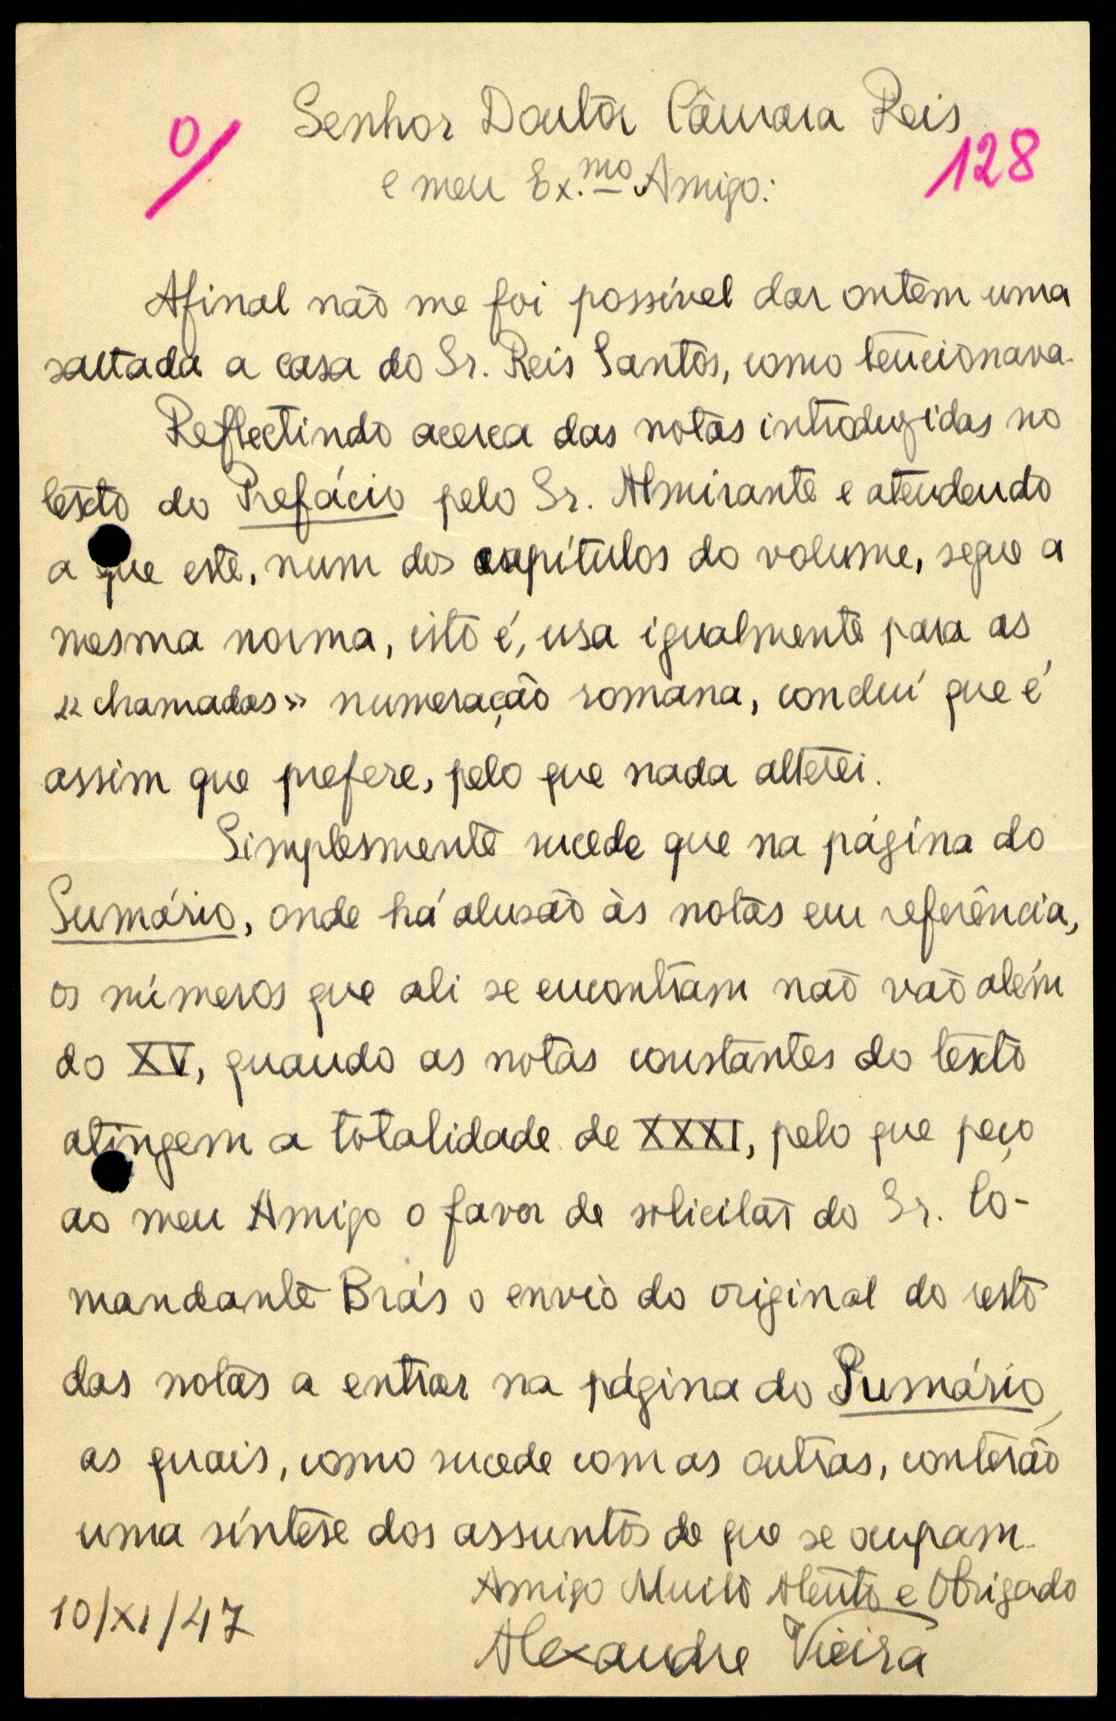 Senhor Doutor Câmara Reis
0/
128
e meu Ex.mo Amigo:
Afinal não me foi possível dar ontem uma
saltada a casa do Sr. Reis Santos, como tencionava.
Reflectindo acerca das notas introduzidas no
texto do Prefácio pelo Sr. Almirante e atendendo
a que este, num dos capítulos do volume, segue a
mesma norma, isto é, usa igualmente para as
«chamadas» numeração romana, concluí que é
assim que prefere, pelo que nada alterei.
Simplesmente sucede que na página do
Sumário, onde há alusão às notas em referência,
os números que ali se encontram não vão além
do XV, quando as notas constantes do texto
atingem a totalidade de XXXI, pelo que peço
ao meu Amigo o favor de solicitar do Sr. Co-
mandante Brás o envio do original do resto
das notas a entrar na página do Sumário,
as quais, como sucede com as outras, conterão
uma síntese dos assuntos de que se ocupam.
Amigo Muito Atento e Obrigado
10/XI/47
Alexandre Vieira